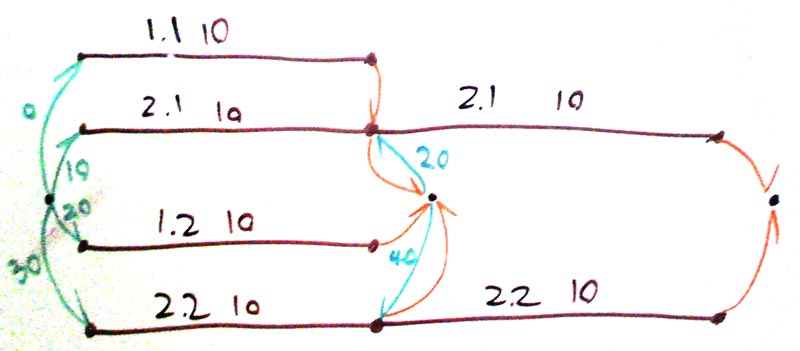 1.1 10
0
2.1 10
2.1 10
10
20
20
1.2 10
30
40
2.2 10
2.2 10